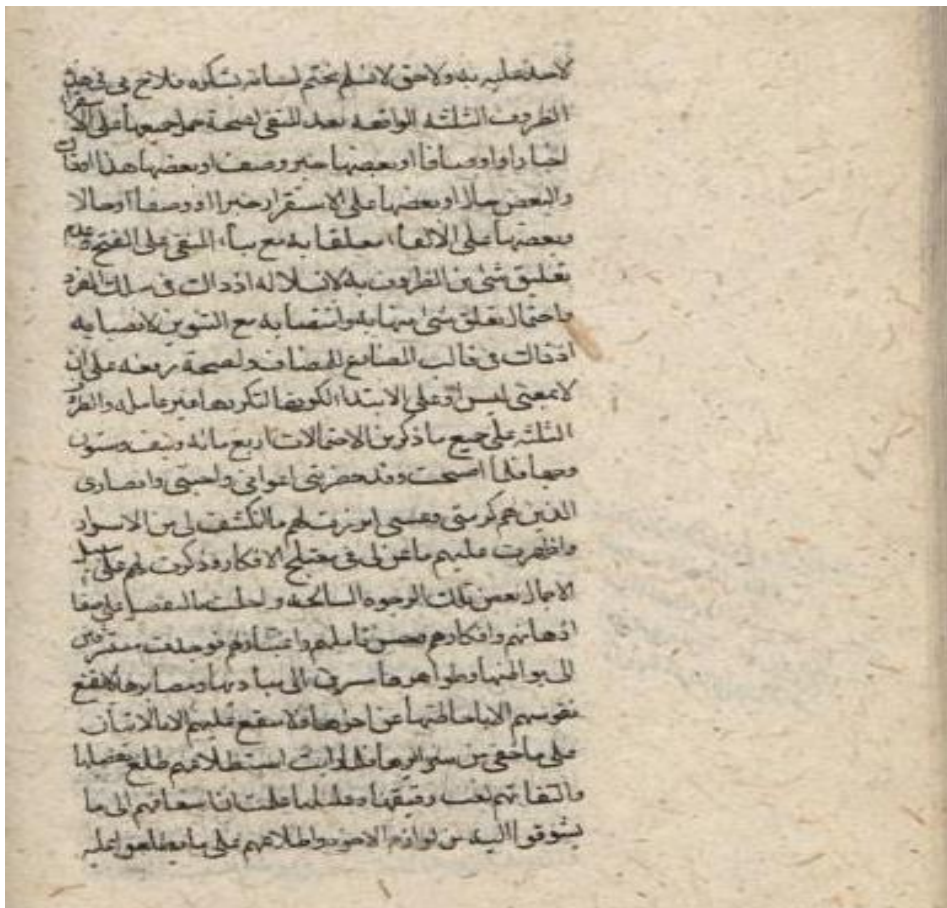 لاحد عليه به ولاحق لاقلم يختم لسانه بشكره فلاح لي في هذه
الظروف الثلثه الواقعه بعد المنفى لصحة حمل جميعها على الاستقرار
اخبارا واوصافا او بعضها خبر وصفا وبعضها هذا اوذاك
والبعض حالا او بعضها على الاستقرار خبرا او وصفا او حالا
وبعضها على الالغاء متعلقا به مع بناء المنفى على الفتح وعدم
تعلق شئ من الظروف به لانسلاله اذ ذاك في سلك المفرد
واحتمال تعلق شئ منها به وانتصابه مع التنوين لانصبابه
اذ ذاك في قالب المضارع للمضاف ولصحة رفعه على ان
لا بمعنى ليس او على الابتداء لكونها لتكريرها غير عامله والظروف
الثلثه على جميع ما ذكر من الاحتمالات اربع مائه ونيف وستون
وجها فلما اصبحت وقد حضرتني اخواني واحبتي وانصاري
الذين هم كرشي وعيبتي ابرزت لهم ما انكشف لي من الاسرار
واظهرت عليهم ما عن لي في معتلج الافكار وذكرت لهم على سبيل
الاجمال بعض تلك الوجوه السانحه واحلت بالتفصيل على صفا
اذهانهم وافكارهم بحسن تاملهم واعتبارهم فوجدت مستشرفين
الى بواطنها وظواهرها الى مباديها ومصادرها لا تقنع
نفوسهم الا باحاطتها عن اخرها ولا تنقع غليلهم الا بالاتيان
على ما خفي من سرائرها فلما رايت استطلاعهم طلع خفاياها
والتفاتهم لفت دقيقها وجليلها علمت ان اسعافهم الى ما
يتشوقوا اليه من لوازم الاخوه واطلاعهم على ما يتطلعوا عليه